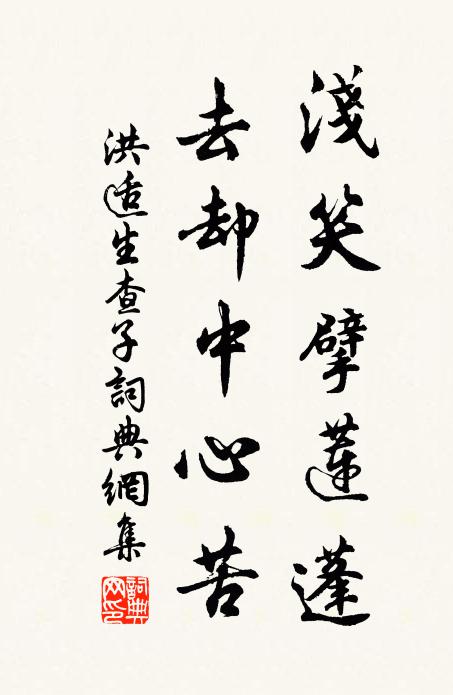 淺笑擘蓮蓬
去却中心苦
洪适生查子詞典網集
詞典网印